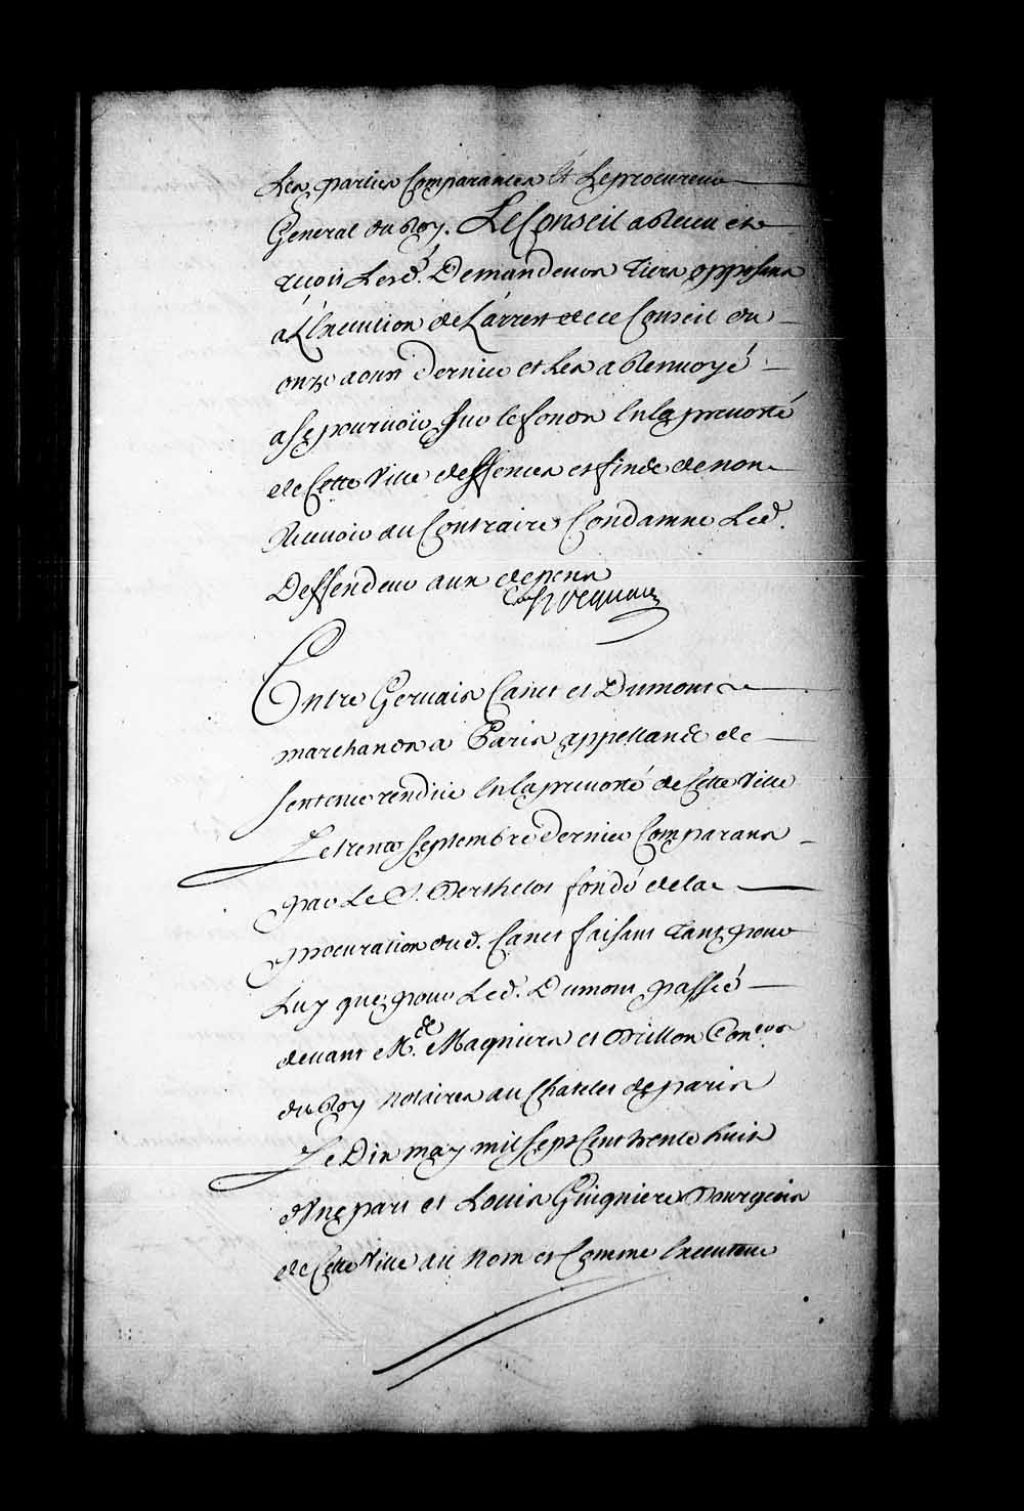 Les parties Comparantes Et Le procureur
General du Roy. Le Conseil a Receu et
reçoit Lesd. Demandeurs tiers opposans
a L'Execution de L'arrest de ce Conseil du
onze aoust dernier et Les a Renvoyé
a se pourvoir sur le fond En la prevosté
de Cette Ville deffenses et fin de non
Recevoir au Contraire Condamne Led.
Deffendeur aux depens
Hocquart
Entre Gervais Canet et Dumont
marchands a Paris appellants de
sentence rendüe En la prevosté de Cette Ville
Le trente septembre dernier Comparans
par Le S. Berthelot fondé de la
procuration dud. Canet faisant tant pour
Luy que pour Led. Dumont passée
devant Me. Magniers et Orillon Con.ers
du Roy notaires au Chatelet de paris
Le Dix may mil sept Cent trente huit
d'Une part et Louis Guigniere Bourgeois
de Cette Ville au Nom et Comme Executeur